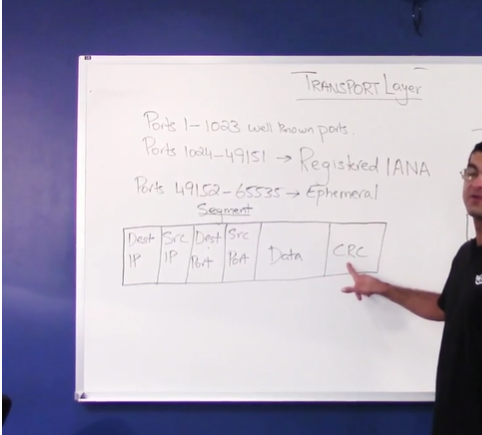 TRANSPORT Layer
Ports 1-1023 well known ports.
Ports 1024-49151 → Registered IANA
Ports 49152-65535 → Ephemeral
Segment
Dest IP
Src IP
Dest Port
Src Port
Data
CRC